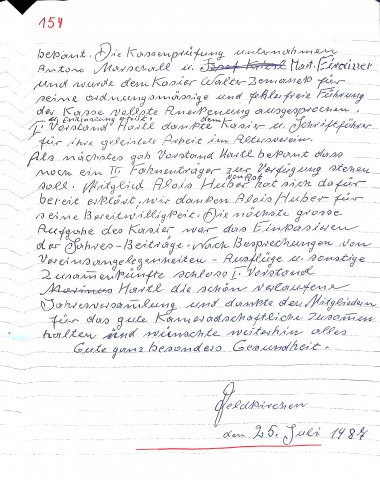 154
bekant. Die Kassenprüfung unternahmen
Anton Marschall u. Josef Mart. Eindiner
und wurde dem Kasier Walter Zemanek für
seine ordnungsmässige und fehlerfreie Führung
der Kasse vollste Anerkennung ausgesprochen.
die Entlastung erteilt.
I. Vorstand Hartl dankte dem Kasier u. Schriftführer
für ihre geleistete Arbeit im Altersverein.
Als nächstes gab Vorstand Hartl bekant dass
noch ein II. Fahnenträger zur Verfügung stehen
soll. Mitglied Alois Huber hat sich dafür
bereit erklärt, wir danken Alois Huber für
seine Bereitwilligkeit. Die nächste grosse
Aufgabe des Kasier war das Einkasieren
der Jahres-Beiträge. Nach Besprechungen von
Vereinsangelegenheiten - Ausflüge u. sonstige
Zusammenkünfte schloss I. Vorstand
Hartl die schön verlaufene
Jahresversammlung und dankte den Mitgliedern
für das gute Kameradschaftliche Zusammen
halten und wünschte weiterhin alles
Gute ganz besonders Gesundheit.
Feldkirchen
den 25. Juli 1987